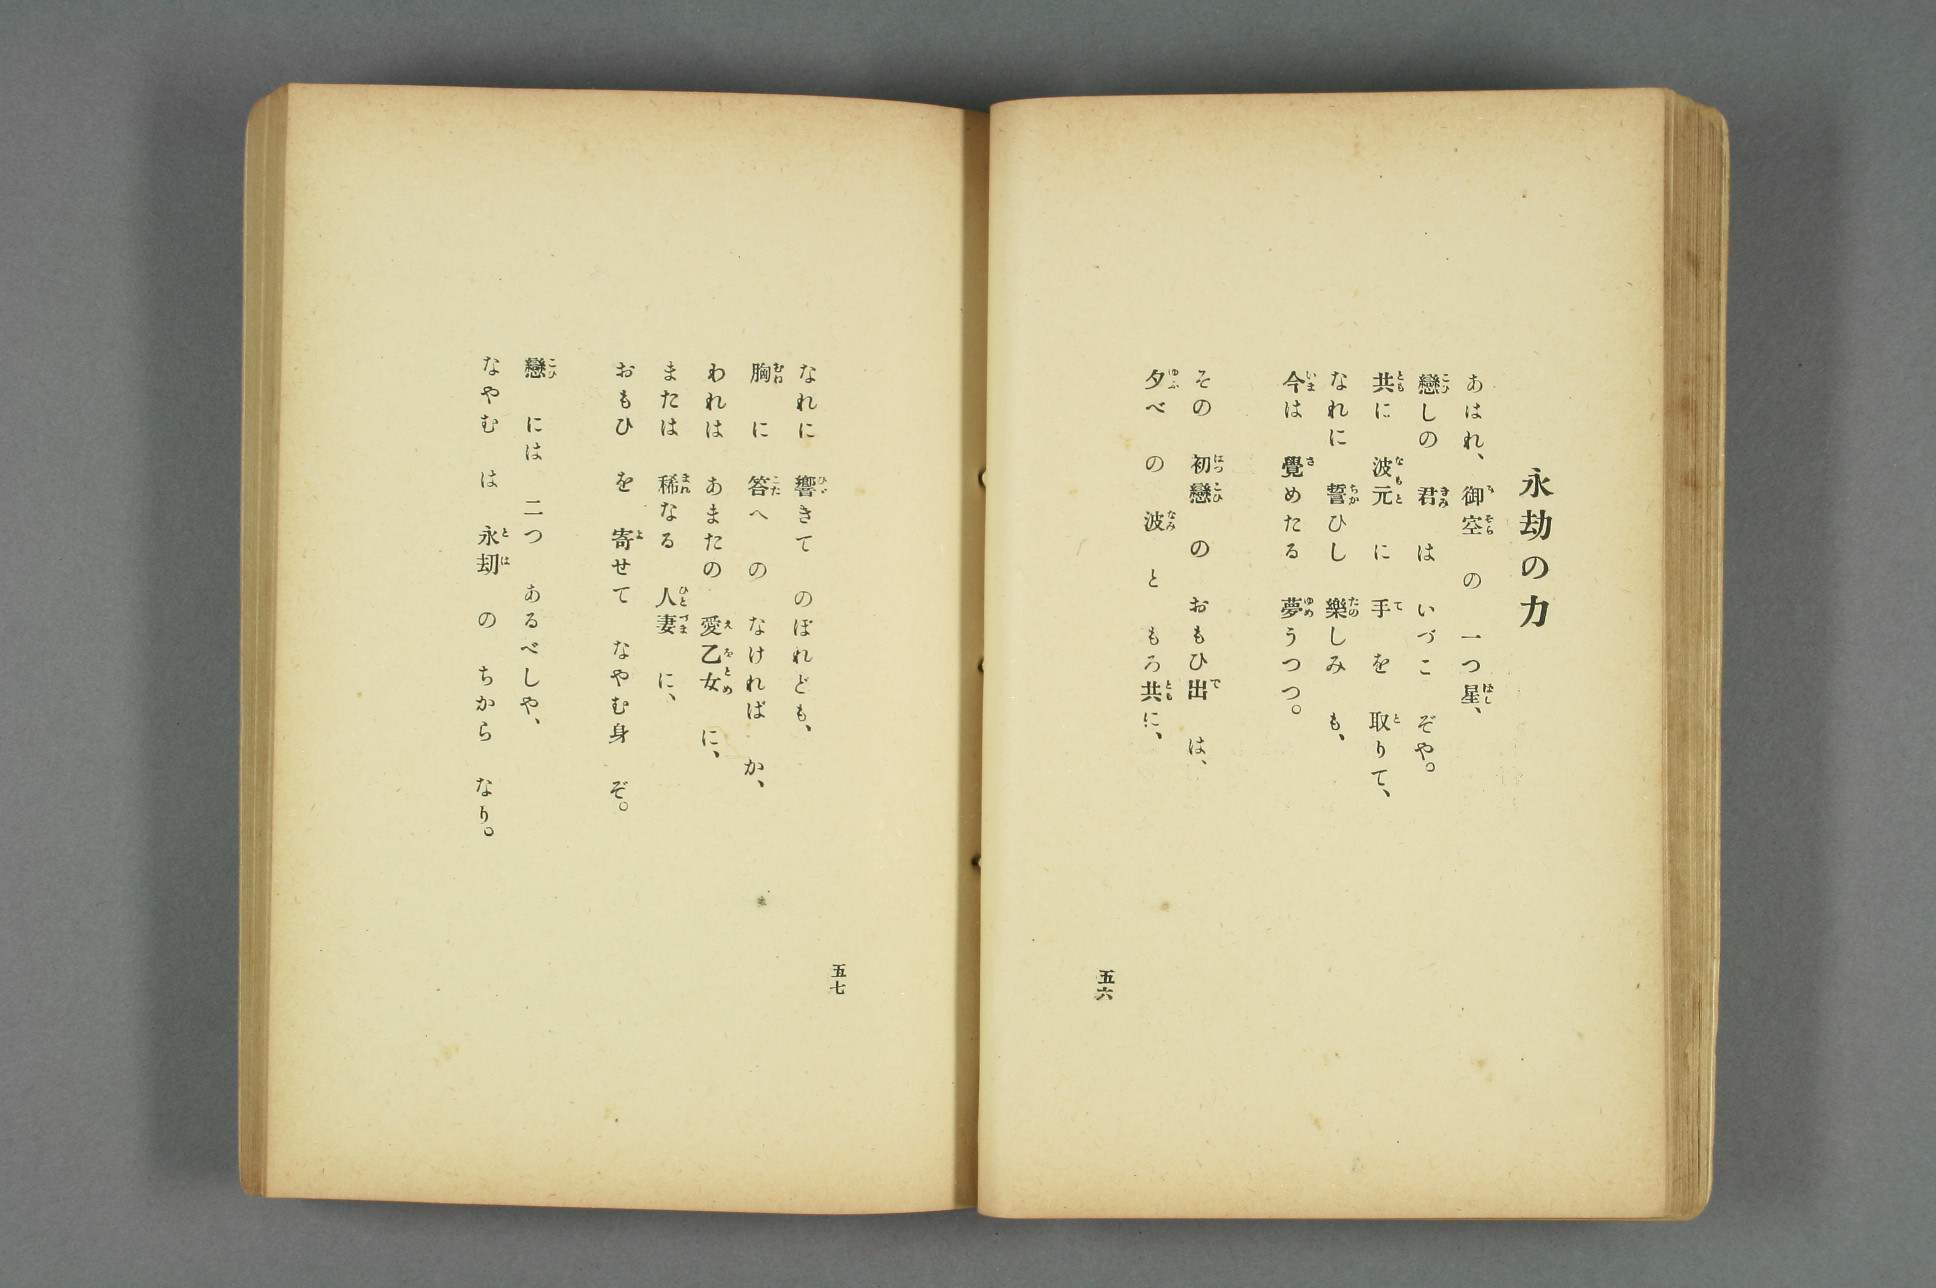 永劫の力
あはれ、御空の一つ星、
戀しの君はいづこぞや。
共に波元に手を取りて、
なれに誓ひし樂しみも、
今は覺めたる夢うつつ。
その初戀のおもひ出は、
夕べの波ともろ共に、
五六
なれに響きてのぼれども、
胸に答への なければか、
われはあまたの愛乙女に、
または稀なる人妻に、
おもひを寄せてなやむ身ぞ。
戀には二つあるべしや、
なやむは永劫のちからなり。
五七